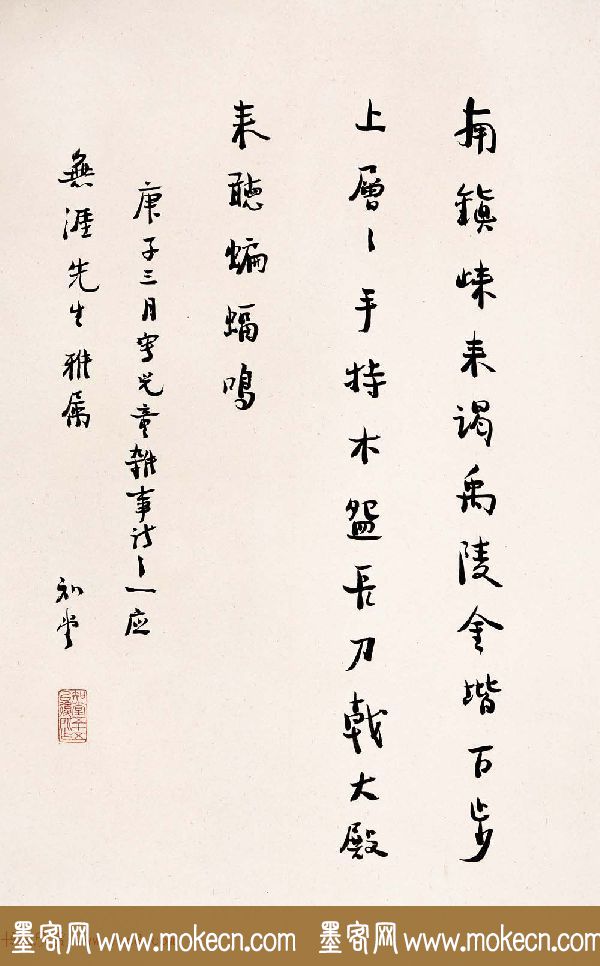 南鎮歸来謁禹陵金堦百步
上層〻手持木盌長刀戟大殿
来聽蝙蝠鳴
庚子三月写兒童雜事詩之一应
無涯先生雅属
知堂
墨客网 www.mokecn.com 墨客网 www.mokecn.com